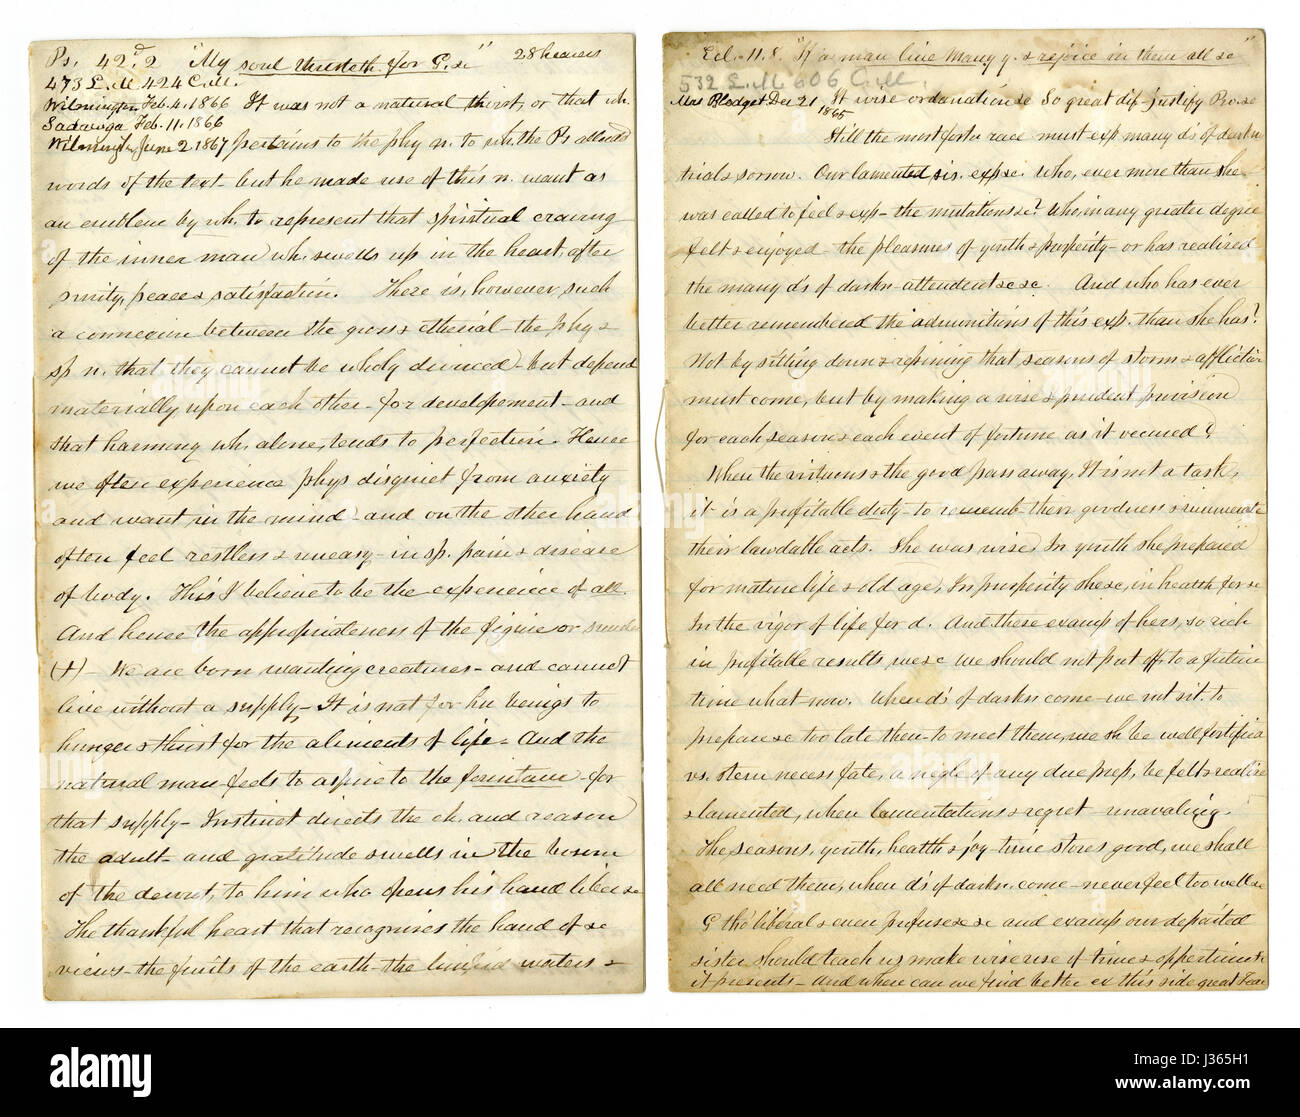 Ps. 42. 2 "My soul thirsteth for G. &c" 28 hearers
473 L.M 424 C.M.
Wilmington Feb. 4. 1866 It was not a natural thirst, or that wh.
Saratoga Feb. 11. 1866
Wilmington June 2. 1867 pertains to the phy n. to wh. the Ps alluded
words of the text - but he made use of this n. want as
an emblem by wh. to represent that spiritual craving
of the inner man wh. swells up in the heart, after
purity, peace & satisfaction. There is, however, such
a connexion between the gross & etherial - the phy &
sp n. that they cannot be wholy divorced - but depend
materially upon each other - for developement - and
that harmony wh. alone, tends to perfection. Hence
we often experience phys disquiet from anxiety
and want in the mind - and on the other hand
often feel restless & uneasy - in sp. pain & disease
of body. This I believe to be the experience of all.
And hence the appropriateness of the figure or
(+) - We are born wanting creatures - and cannot
live without a supply - It is nat for hu beings to
hunger & thirst for the aliments of life - And the
natural man feels to aspire to the fountain - for
that supply - Instinct directs the ch. and reason
the adult - and gratitude swells in the bosom
of the devout, to him who opens his hand liber &c
The thankful heart that recognises the hand of &c
views - the fruits of the earth - the limpid waters &
Ecl. 11. 8. "If a man live many y. & rejoice in them all &c"
532 L.M. 606 C.M.
Mrs Blodget Dec 21 1865 It wise ordination &c So great dif - justify Prov. &c
Still the most forto race must exp many ds of dark n
trials sorrow. Our lamented sis. exp &c. Who, ever more than she
was called to feel & exp - the mutations &c? Who, in any greater degree
felt & enjoyed the pleasures of youth & prosperity - or has realised
the many ds of darkn - attendent &c &c. And who has ever
better remembered the admonitions of this exp. than she has?
Not by sitting down & repining that seasons of storm & affliction
must come, but by making a wise & prudent provision
for each season & each event of fortune as it occured?
When the virtuous & the good pass away, It is not a task,
it is a profitable duty - to rememb their goodness & innumerate
their laudable acts. She was wise In youth she prepared
for mature life & old age, In prosperity she &c, in health for &c
In the vigor of life for d. And these examp of hers, so rich
in profitable results, we &c we should not put off to a future
time what now. When ds of darkn come - we not sit to
prepare &c too late then to meet them, we sh be well fortified
vs. stern necess fate, a negle of any due prep, be felt & realise
& lamented, when lamentations & regret - unavaling.
The seasons, youth, health & joy - time stores good, we shall
all need them, when ds of darkn. come - never feel too well &c
G tho' liberal & even profuse &c &c and examp our departed
sister should teach us make wise use of time & opportunit
it presents - and where can we find better ex this side great
alamy
Image ID: J365H1
www.alamy.com